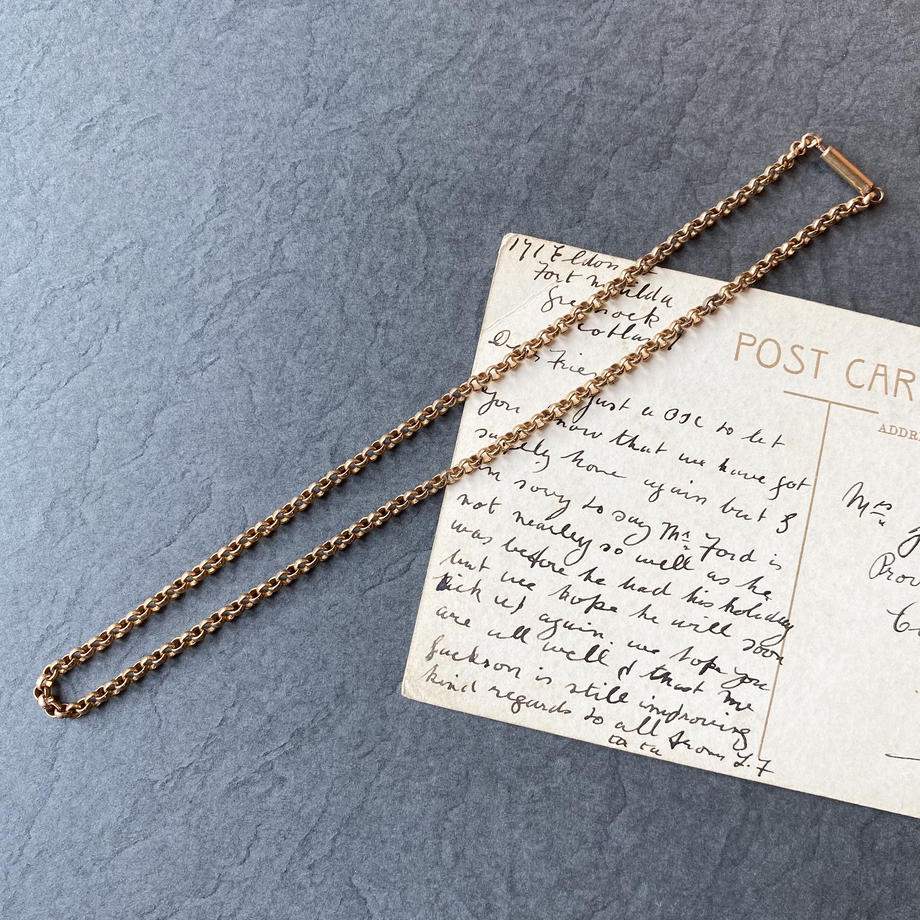 171 Eldon
Fort Matilda
Greenock
Scotland
Dear Frien
just a P.C. to let
you know that we have got
safely home again but I
am sorry to say Mr. Ford is
not nearley so well as he
was before he had his holiday
but we hope he will soon
kick up again. we hope you
are all well & that Mr
Jackson is still improving
kind regards to all from L.F
ta ta
POST CAR
ADDRE
Mrs
Prov